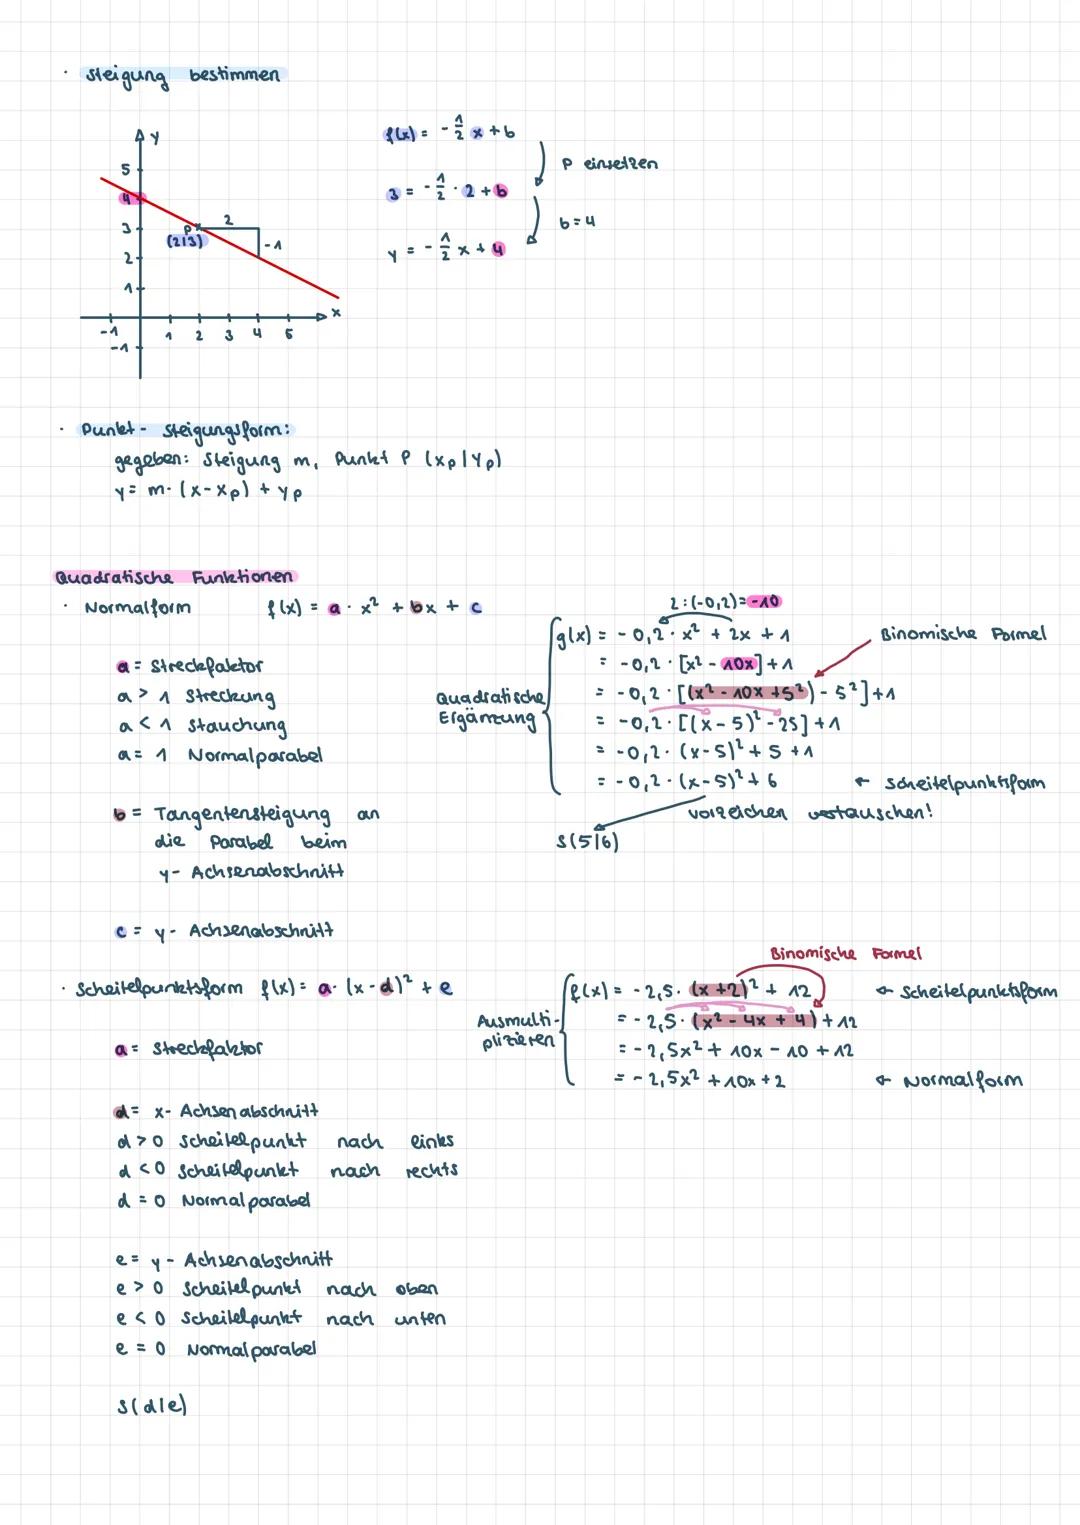 · Steigung bestimmen
y
5
4
3
2
1
-1
-1 1 2 3 4 5 x
P
(2|3)
2
-1
f(x) = -1/2 x + b
P einsetzen
3 = -1/2 · 2 + b
b = 4
y = -1/2 x + 4
· Punkt- Steigungsform:
gegeben: Steigung m, Punkt P (xp|yp)
y = m · (x - xp) + yp
Quadratische Funktionen
· Normalform f(x) = a · x² + bx + c
a = Streckfaktor
a > 1 Streckung
a < 1 Stauchung
a = 1 Normalparabel
b = Tangentensteigung an
die Parabel beim
y- Achsenabschnitt
c = y- Achsenabschnitt
Quadratische
Ergänzung
2:(-0,2)=-10
g(x) = -0,2 · x² + 2x + 1
Binomische Formel
= -0,2 · [x² - 10x] + 1
= -0,2 · [(x² - 10x + 5²) - 5²] + 1
= -0,2 · [(x - 5)² - 25] + 1
= -0,2 · (x - 5)² + 5 + 1
= -0,2 · (x - 5)² + 6 ← Scheitelpunktsform
Vorzeichen vertauschen!
S(5|6)
· Scheitelpunktsform f(x) = a · (x - d)² + e
a = Streckfaktor
d = x- Achsenabschnitt
d > 0 Scheitelpunkt nach links
d < 0 Scheitelpunkt nach rechts
d = 0 Normalparabel
e = y- Achsenabschnitt
e > 0 Scheitelpunkt nach oben
e < 0 Scheitelpunkt nach unten
e = 0 Normalparabel
S(d|e)
Ausmulti-
plizieren
Binomische Formel
f(x) = -2,5 · (x + 2)² + 12 ← Scheitelpunktsform
= -2,5 · (x² - 4x + 4) + 12
= -2,5x² + 10x - 10 + 12
= -2,5x² + 10x + 2 ← Normalform